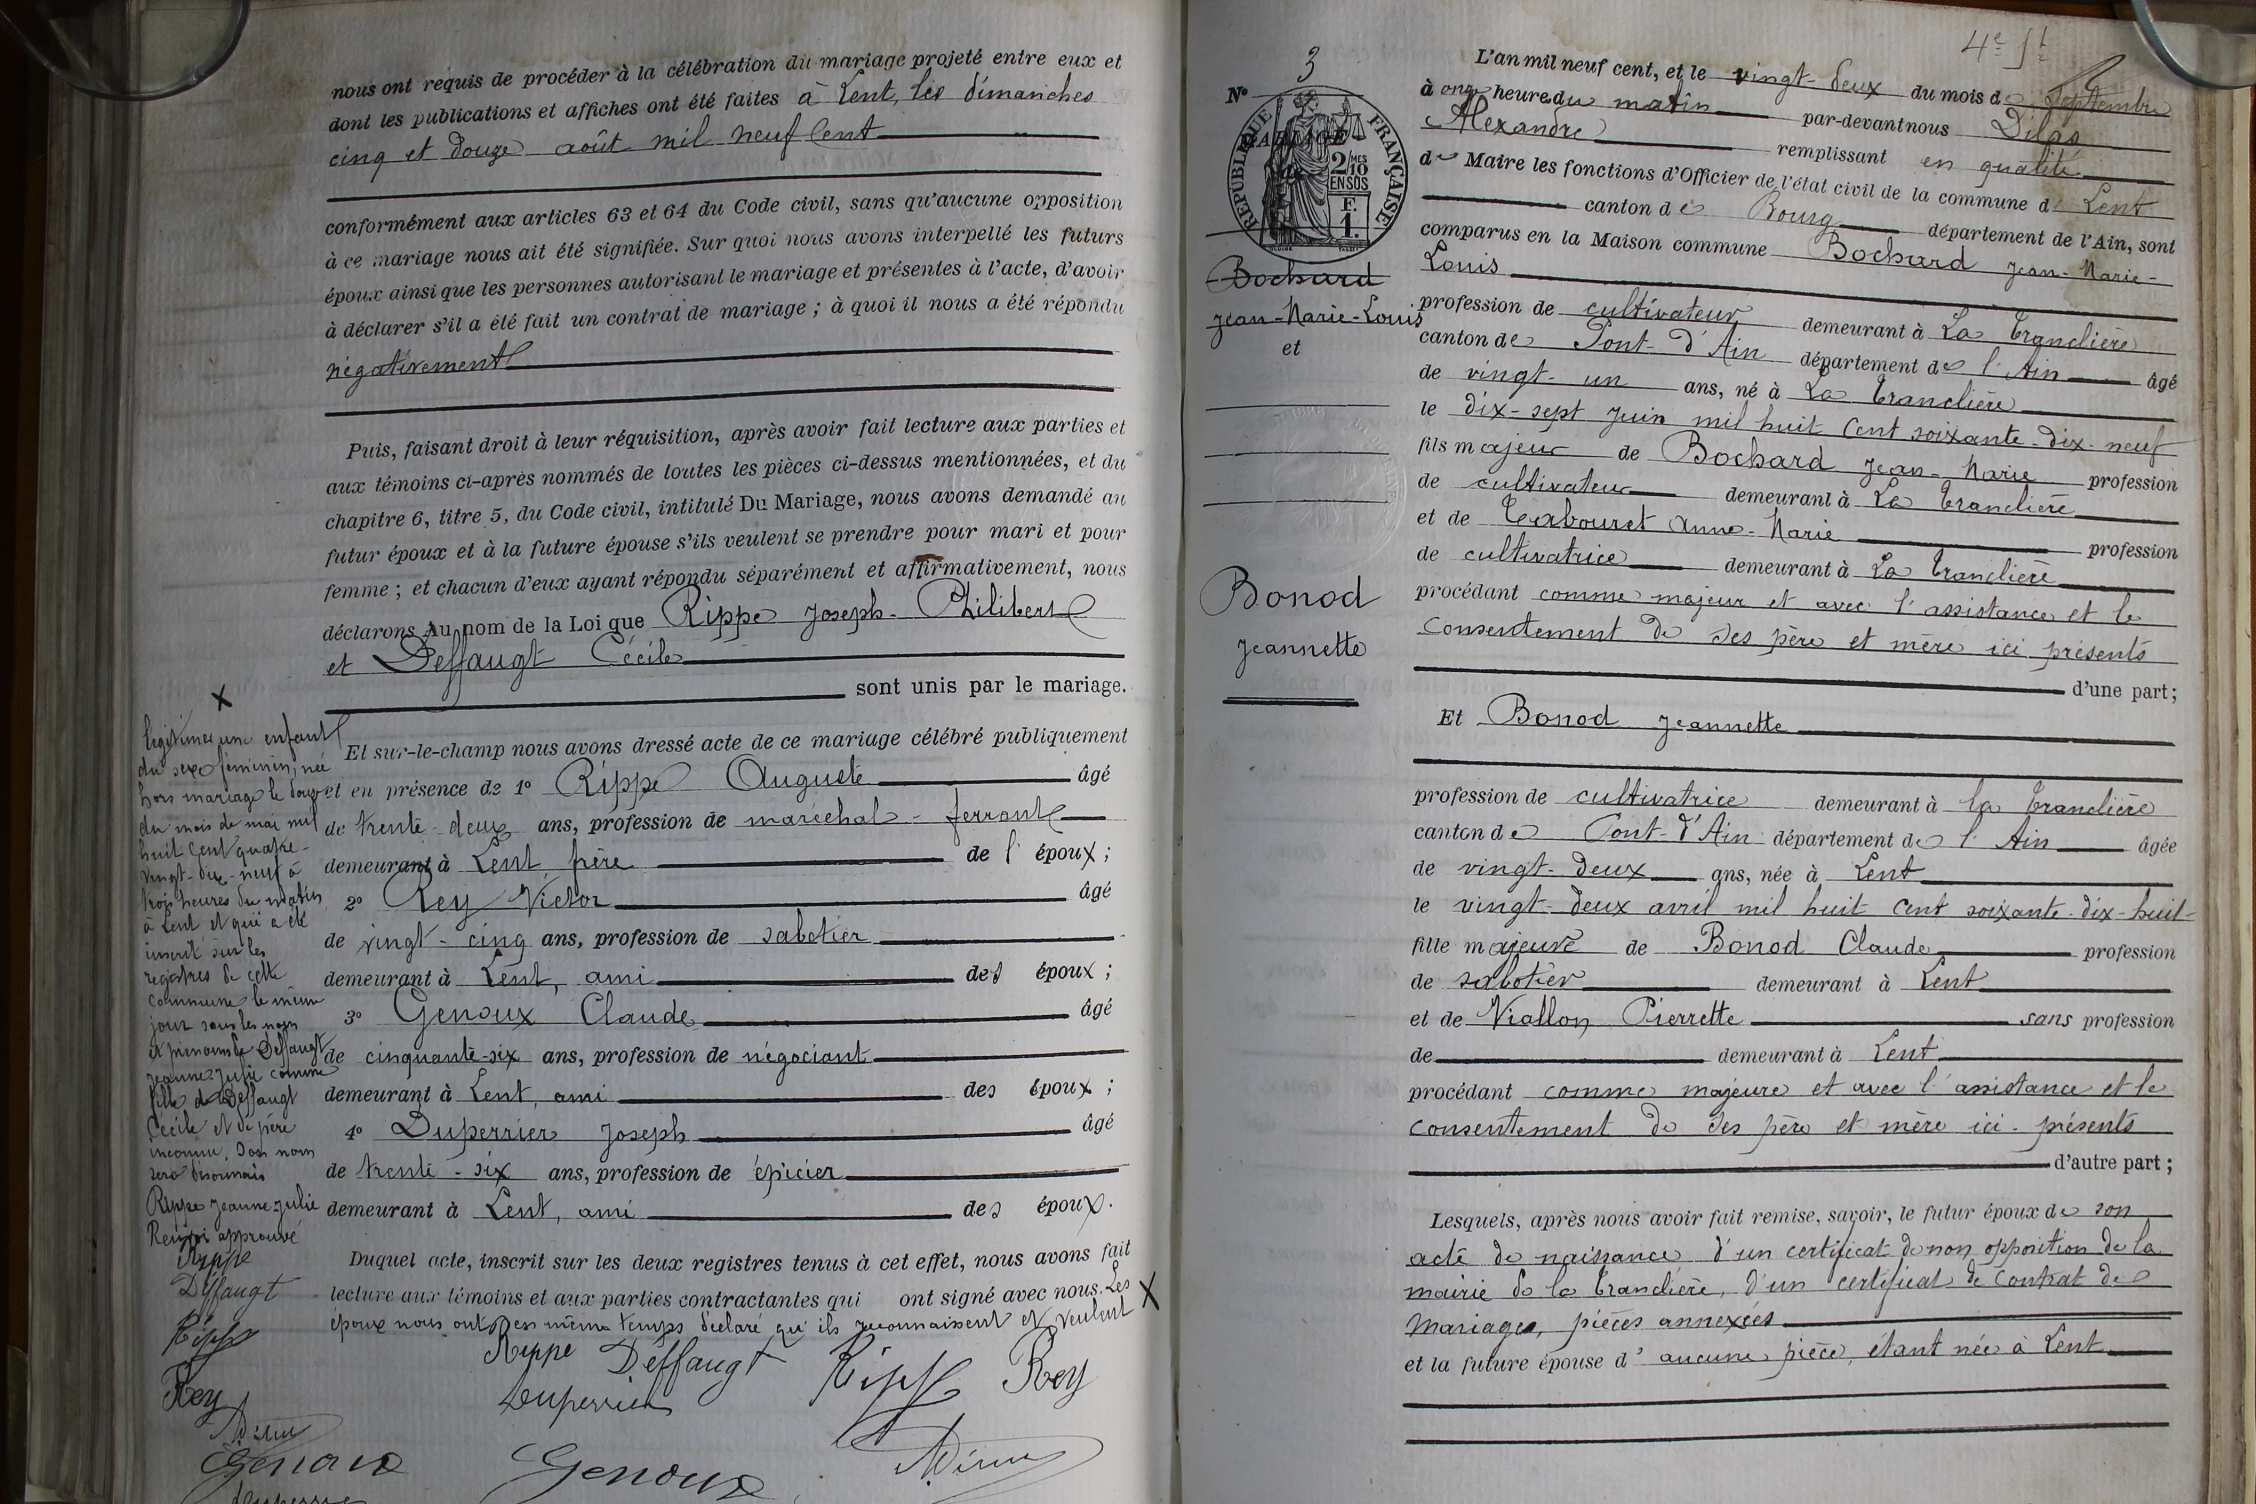 nous ont requis de procéder à la célébration du mariage projeté entre eux et
dont les publications et affiches ont été faites à Lent, les dimanches
cinq et douze août mil neuf cent
conformément aux articles 63 et 64 du Code civil, sans qu'aucune opposition
à ce mariage nous ait été signifiée. Sur quoi nous avons interpellé les futurs
époux ainsi que les personnes autorisant le mariage et présentes à l'acte, d'avoir
à déclarer s'il a été fait un contrat de mariage ; à quoi il nous a été répondu
négativement
Puis, faisant droit à leur réquisition, après avoir fait lecture aux parties et
aux témoins ci-après nommés de toutes les pièces ci-dessus mentionnées, et du
chapitre 6, titre 5, du Code civil, intitulé Du Mariage, nous avons demandé au
futur époux et à la future épouse s'ils veulent se prendre pour mari et pour
femme ; et chacun d'eux ayant répondu séparément et affirmativement, nous
déclarons Au nom de la Loi que Rippe Joseph-Philibert
et Deffaugt Cécile
sont unis par le mariage.
Et sur-le-champ nous avons dressé acte de ce mariage célébré publiquement
et en présence de 1º Rippe Auguste âgé
de trente-deux ans, profession de maréchal-ferrant
demeurant à Lent, frère de l'époux ;
2º Rey Victor âgé
de vingt-cinq ans, profession de sabotier
demeurant à Lent, ami des époux ;
3º Genoux Claude âgé
de cinquante-six ans, profession de négociant
demeurant à Lent, ami des époux ;
4º Duperrier Joseph âgé
de trente-six ans, profession de épicier
demeurant à Lent, ami des époux.
Duquel acte, inscrit sur les deux registres tenus à cet effet, nous avons fait
lecture aux témoins et aux parties contractantes qui ont signé avec nous. Les
époux nous ont en même temps déclaré qu'ils reconnaissent et veulent X
Rippe Deffaugt Rippe Rey
Duperrier
Genoux
X
légitimer une enfant
du sexe féminin, née
hors mariage le douze
du mois de mai mil
huit cent quatre-
vingt-dix-neuf à
trois heures du matin
à Lent et qui a été
inscrit sur les
registres de cette
commune le même
jour sous les nom
et prénoms de Deffaugt
Jeanne-Julie comme
fille de Deffaugt
Cécile et de père
inconnu. Son nom
sera désormais
Rippe Jeanne-Julie
Renvoi approuvé
Rippe
Deffaugt
Rippe
Rey
Genoux
Duperrier
4e
Nº 3
RÉPUBLIQUE FRANÇAISE
MARIAGE
2/10 MES
EN SUS
F.
1.
Bochard
Jean-Marie-Louis
et
Bonod
Jeannette
L'an mil neuf cent, et le vingt-deux du mois de Septembre
à onze heures du matin par-devant nous Dilas
Alexandre remplissant en qualité
de Maire les fonctions d'Officier de l'état civil de la commune de Lent
canton de Bourg département de l'Ain, sont
comparus en la Maison commune Bochard Jean-Marie-
Louis
profession de cultivateur demeurant à La Tranclière
canton de Pont-d'Ain département de l'Ain âgé
de vingt-un ans, né à La Tranclière
le dix-sept juin mil huit cent soixante-dix-neuf
fils majeur de Bochard Jean-Marie profession
de cultivateur demeurant à La Tranclière
et de Tabouret Anne-Marie profession
de cultivatrice demeurant à La Tranclière
procédant comme majeur et avec l'assistance et le
consentement de ses père et mère ici présents
d'une part ;
Et Bonod Jeannette
profession de cultivatrice demeurant à la Tranclière
canton de Pont-d'Ain département de l'Ain âgée
de vingt-deux ans, née à Lent
le vingt-deux avril mil huit cent soixante-dix-huit-
fille majeure de Bonod Claude profession
de sabotier demeurant à Lent
et de Viallon Pierrette sans profession
de demeurant à Lent
procédant comme majeure et avec l'assistance et le
consentement de ses père et mère ici présents
d'autre part ;
Lesquels, après nous avoir fait remise, savoir, le futur époux de son
acte de naissance, d'un certificat de non opposition de la
mairie de la Tranclière, d'un certificat de contrat de
mariage, pièces annexées
et la future épouse d'aucune pièce, étant née à Lent